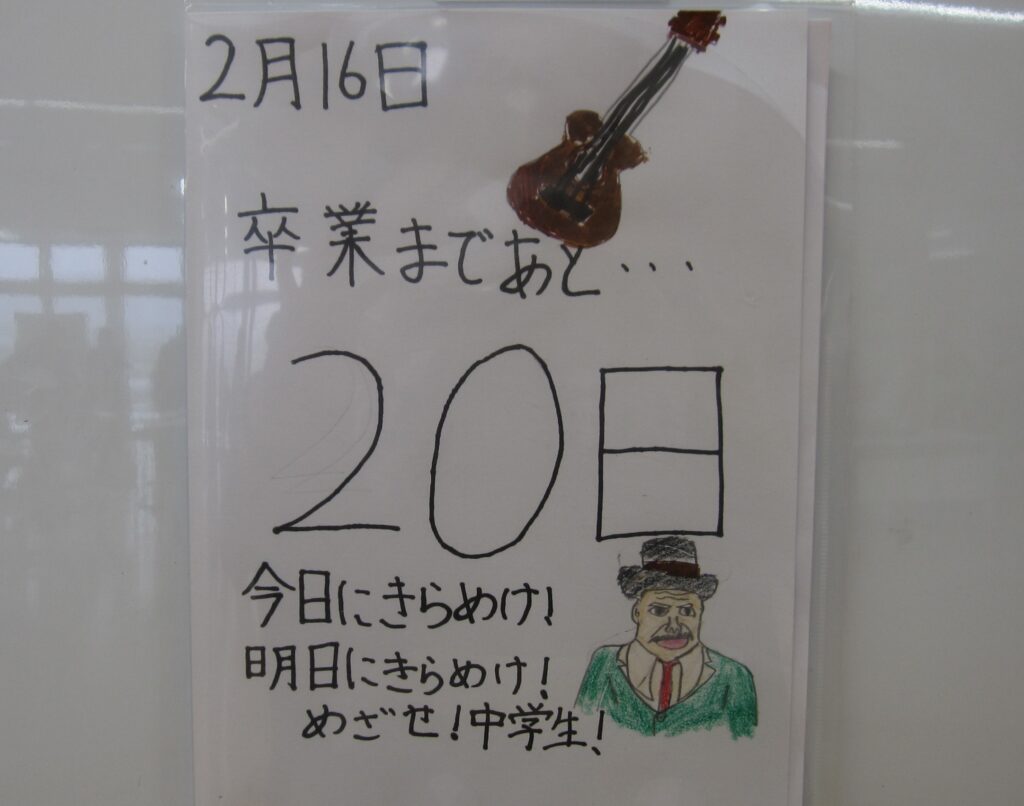 2月16日
卒業まであと...
20日
今日にきらめけ!
明日にきらめけ!
めざせ!中学生!